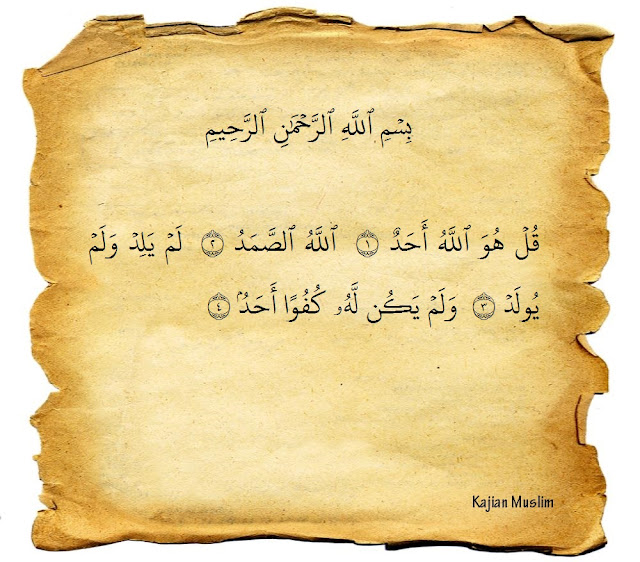 بِسۡمِ ٱللَّهِ ٱلرَّحۡمَٰنِ ٱلرَّحِيمِ
قُلۡ هُوَ ٱللَّهُ أَحَدٌ ١ ٱللَّهُ ٱلصَّمَدُ ٢ لَمۡ يَلِدۡ وَلَمۡ
يُولَدۡ ٣ وَلَمۡ يَكُن لَّهُۥ كُفُوًا أَحَدُۢ ٤
Kajian Muslim